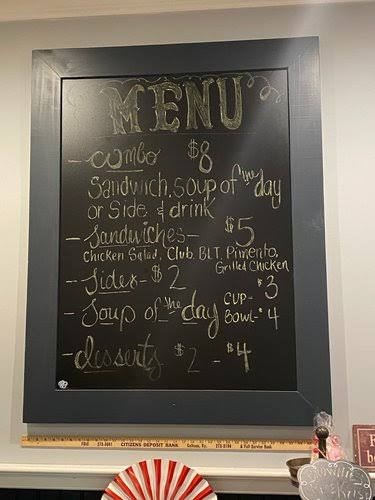 MENU
- combo $8
Sandwich, soup of the day
or side & drink
- Sandwiches - $5
Chicken Salad, Club, BLT, Pimento,
Grilled Chicken
- Sides - $2
- Soup of the day CUP - $3
Bowl - $4
- desserts $2 - $4
CITIZENS DEPOSIT BANK
A Full Service Bank